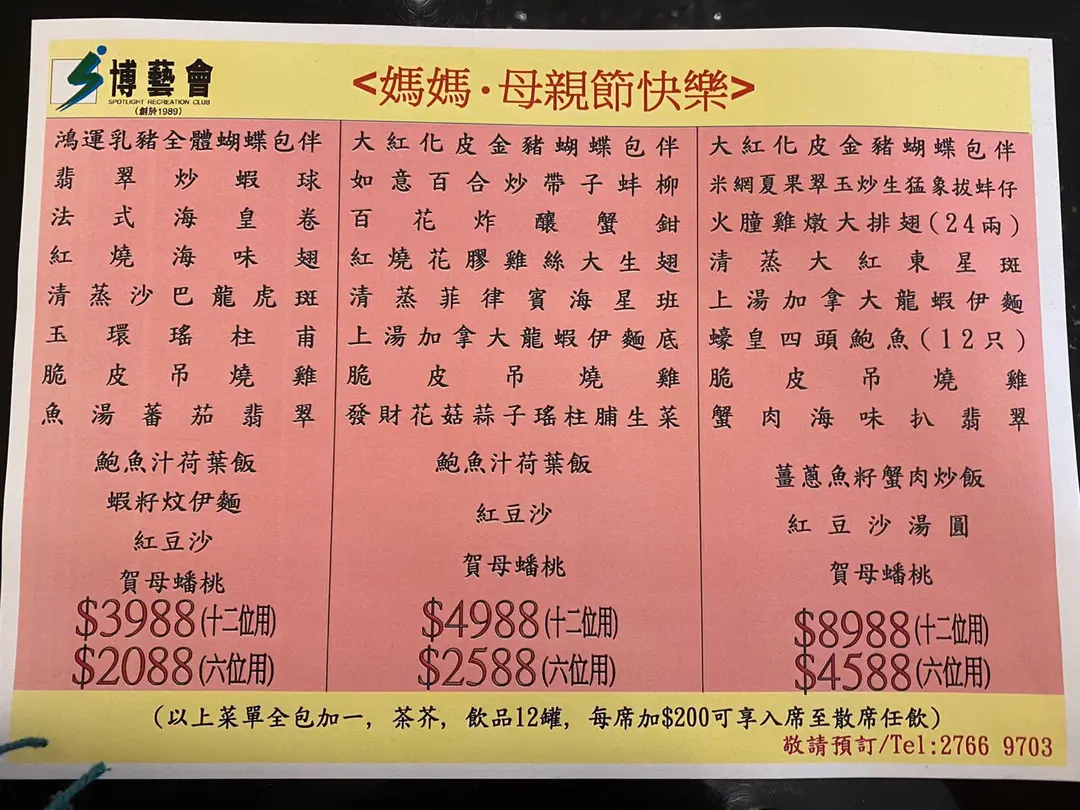 博藝會
SPOTLIGHT RECREATION CLUB
(創於1989)
<媽媽·母親節快樂>
鴻運乳豬全體蝴蝶包伴
翡翠炒蝦球
法式海皇卷
紅燒海味翅
清蒸沙巴龍虎斑
玉環瑤柱甫
脆皮吊燒雞
魚湯蕃茄翡翠
鮑魚汁荷葉飯
蝦籽炆伊麵
紅豆沙
賀母蟠桃
$3988(十二位用)
$2088(六位用)
大紅化皮金豬蝴蝶包伴
如意百合炒帶子蚌柳
百花炸釀蟹鉗
紅燒花膠雞絲大生翅
清蒸菲律賓海星班
上湯加拿大龍蝦伊麵底
脆皮吊燒雞
發財花菇蒜子瑤柱脯生菜
鮑魚汁荷葉飯
紅豆沙
賀母蟠桃
$4988(十二位用)
$2588(六位用)
大紅化皮金豬蝴蝶包伴
米網夏果翠玉炒生猛象拔蚌仔
火朣雞燉大排翅(24兩)
清蒸大紅東星斑
上湯加拿大龍蝦伊麵
蠔皇四頭鮑魚(12只)
脆皮吊燒雞
蟹肉海味扒翡翠
薑蔥魚籽蟹肉炒飯
紅豆沙湯圓
賀母蟠桃
$8988(十二位用)
$4588(六位用)
(以上菜單全包加一，茶芥，飲品12罐，每席加$200可享入席至散席任飲)
敬請預訂/Tel:2766 9703